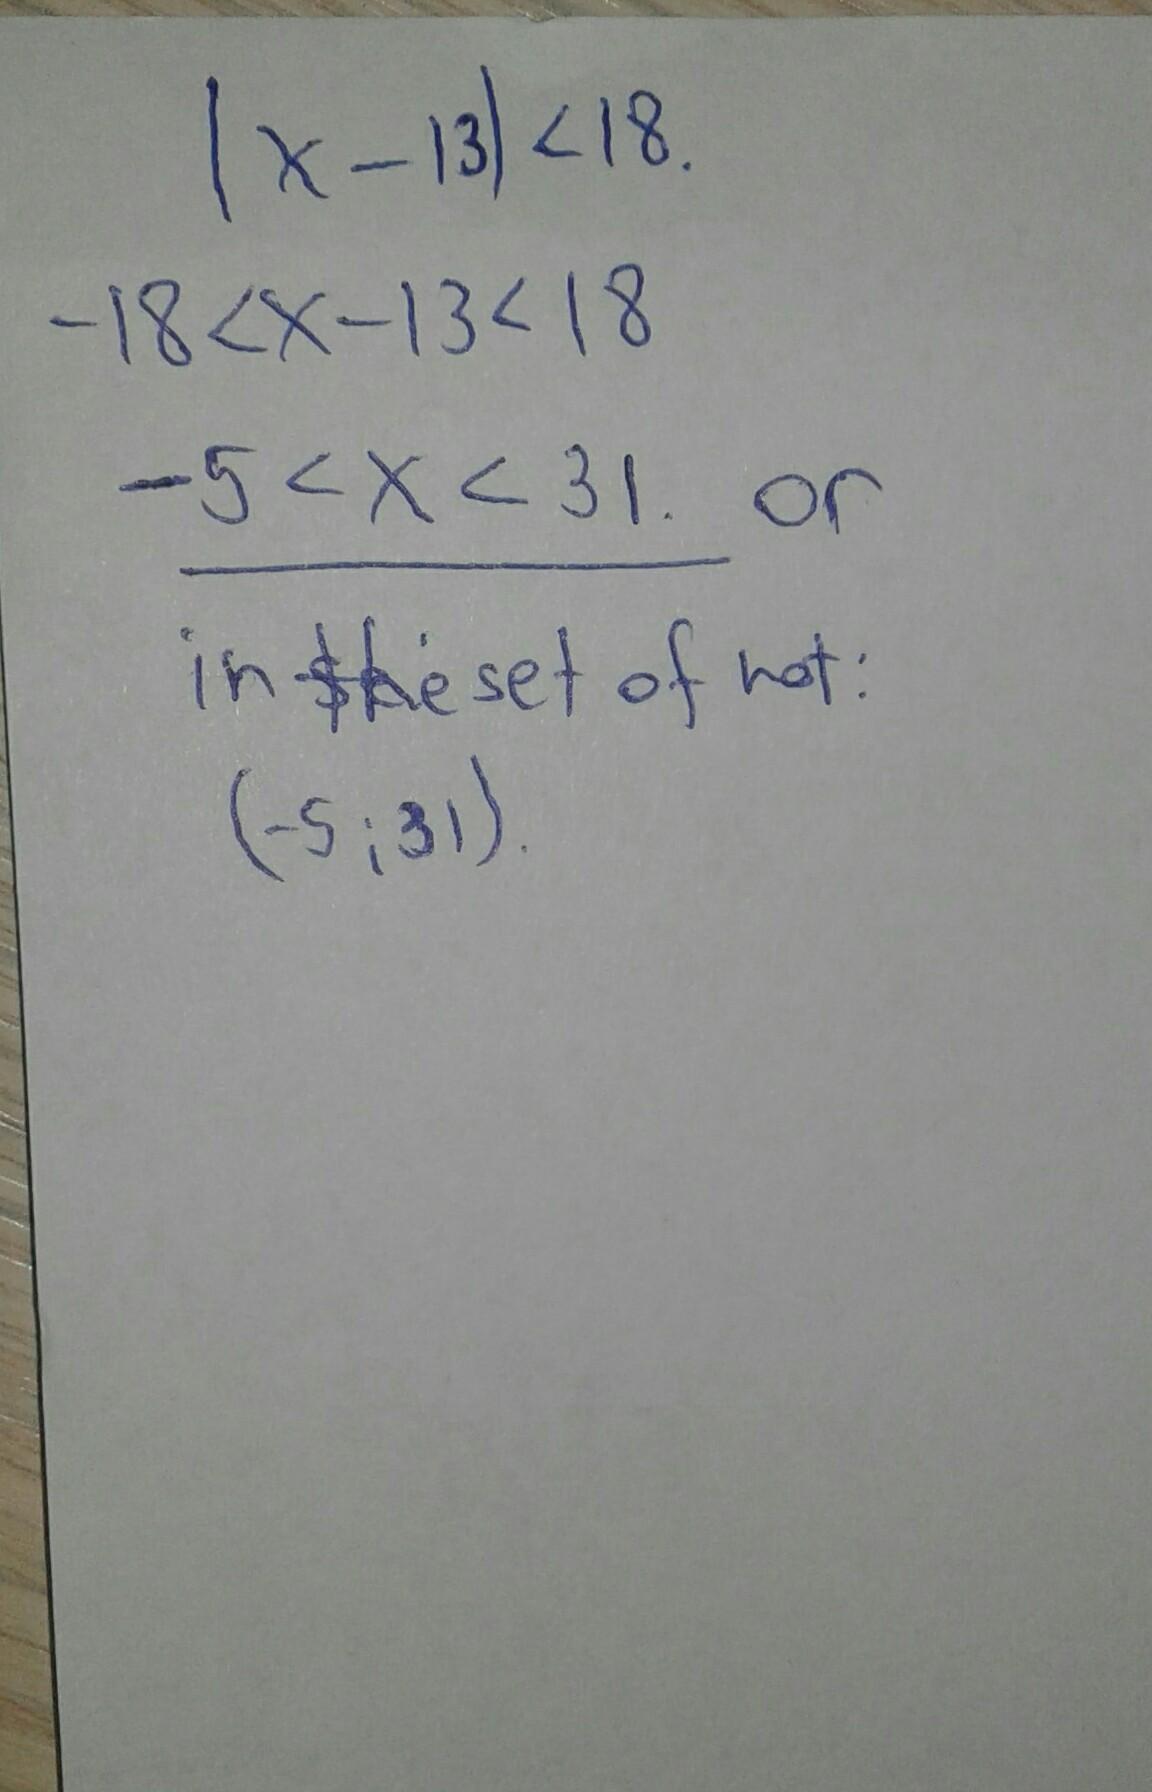 |x-13|<18.
-18<x-13<18
-5<x<31. or
in the set of not:
(-5;31).